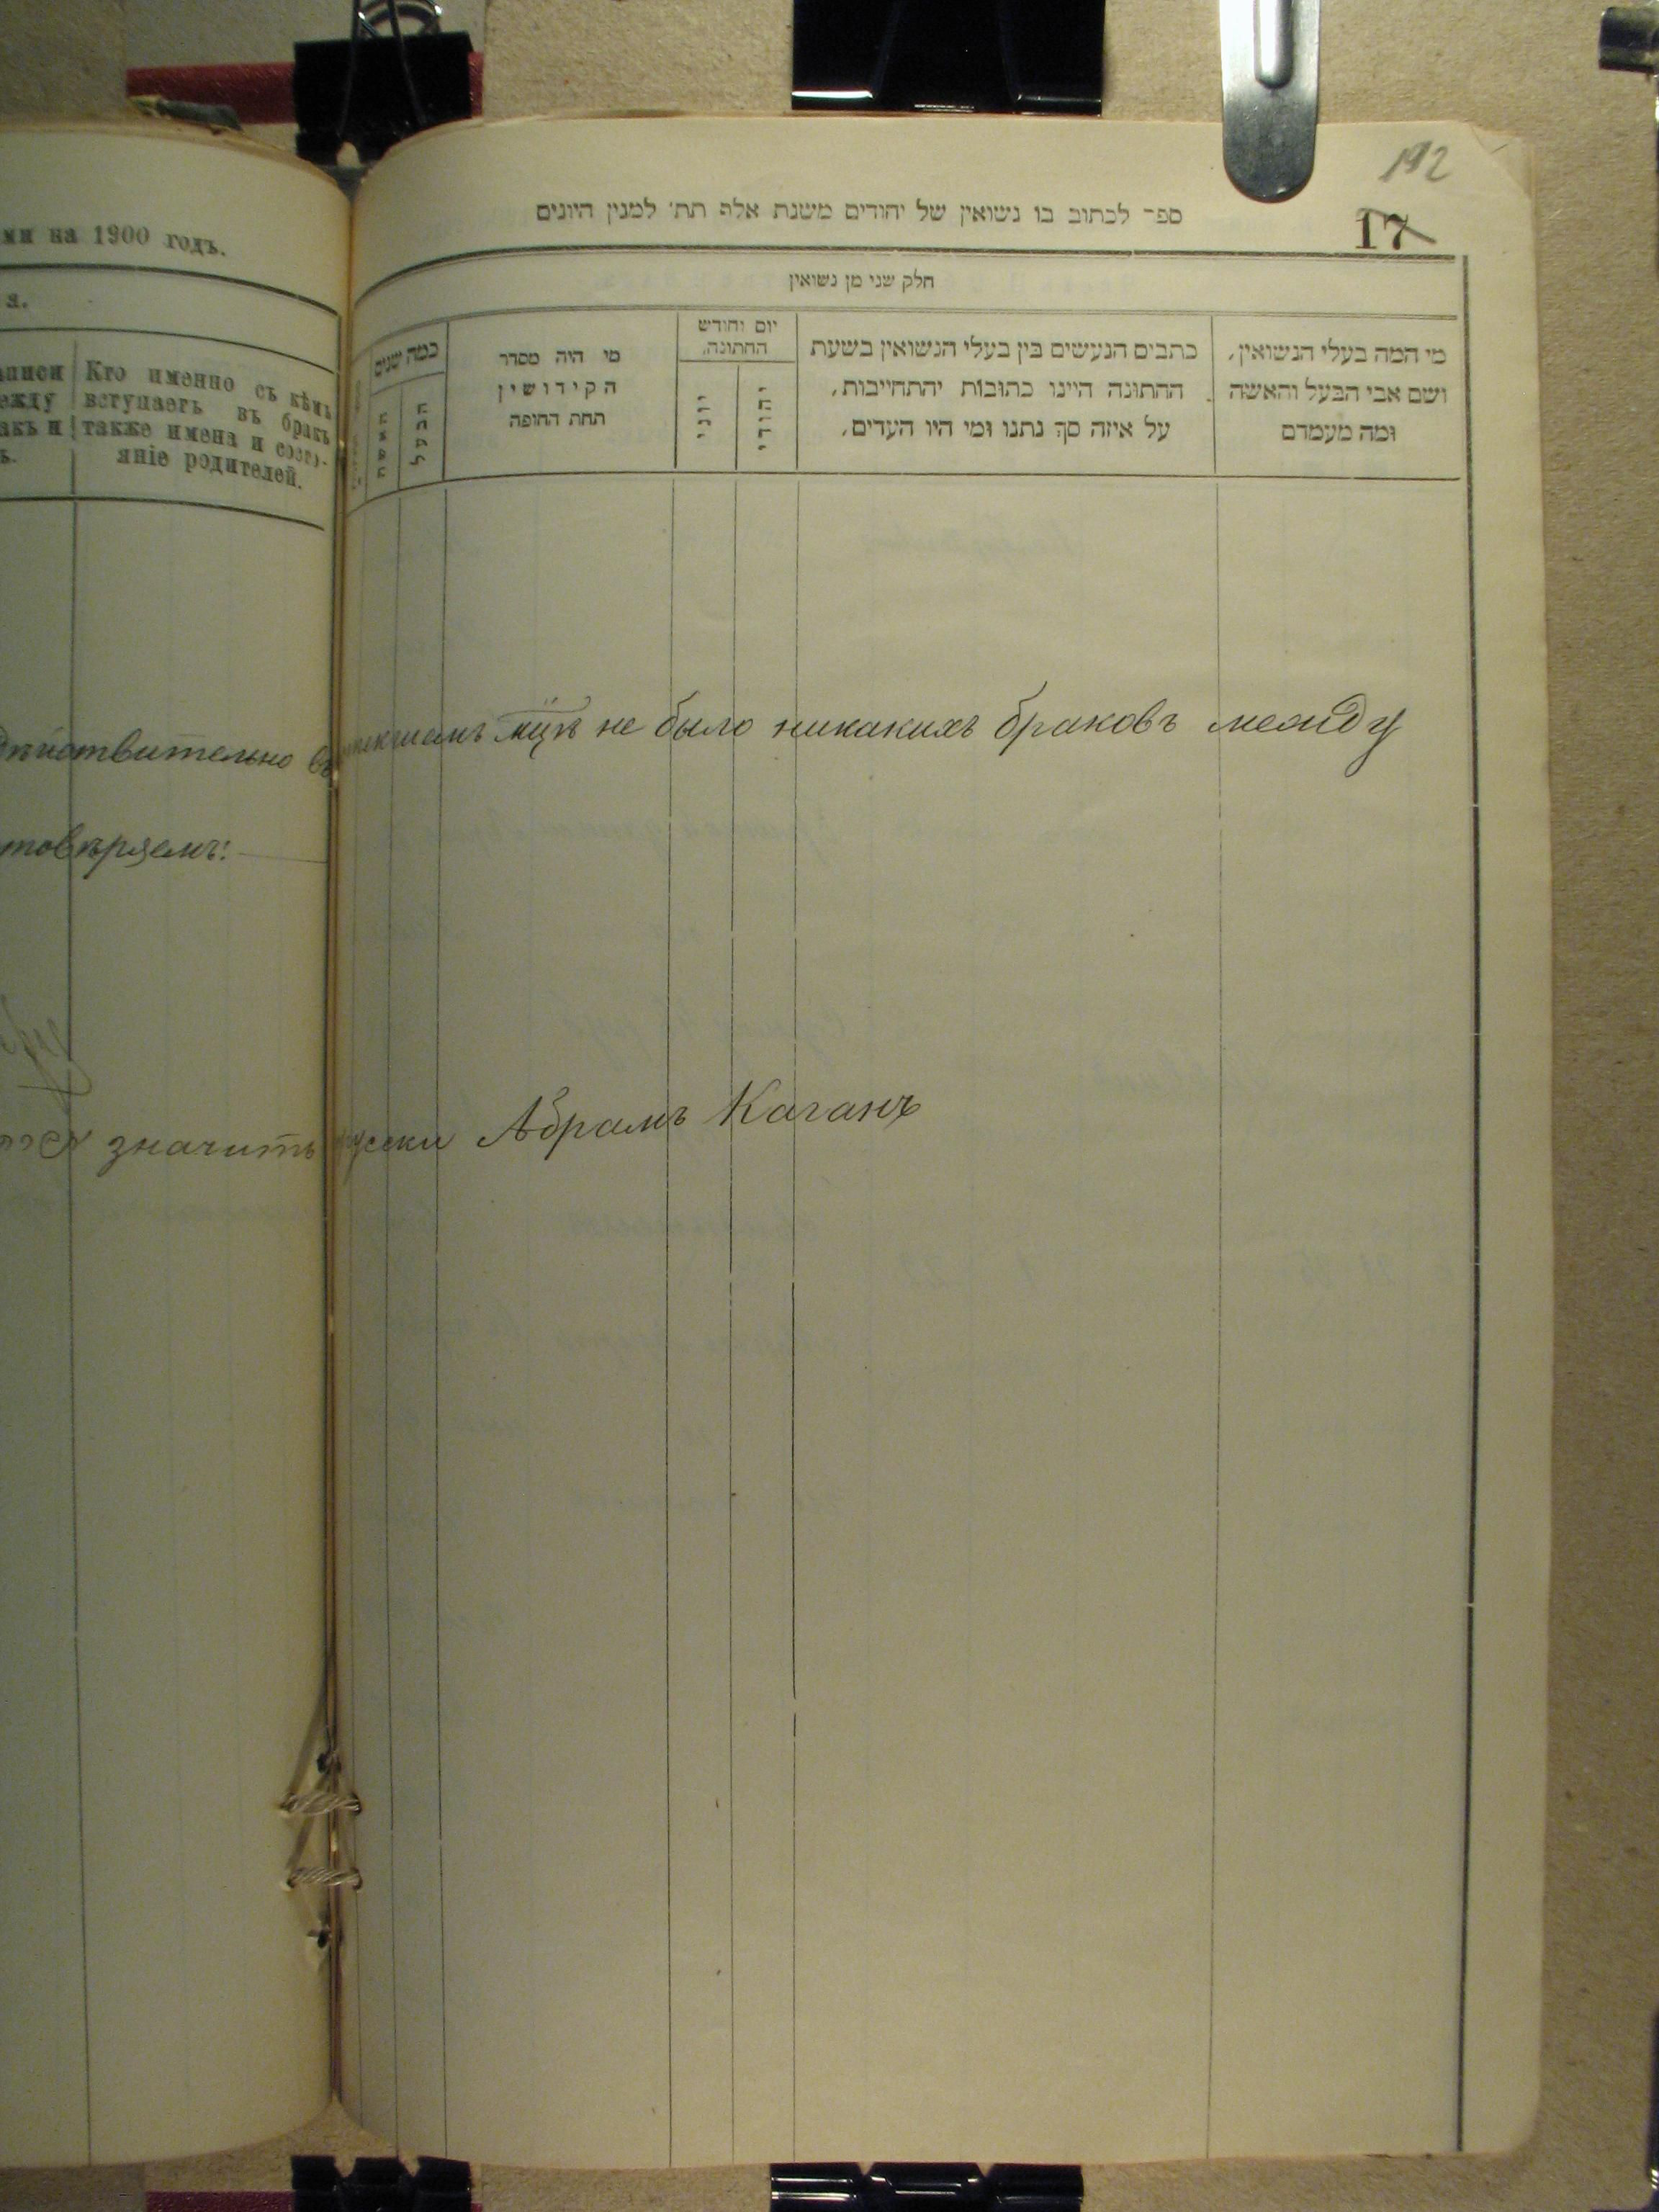 ми на 1900 годъ.
а.
аписи
ежду
акъ и
ъ.
Кто именно съ кѣмъ
вступаетъ въ бракъ
также имена и состо-
яніе родителей.
192
17
ספר לכתוב בו נשואין של יהודים משנת אלף תת׳ למנין היונים
חלק שני מן נשואין
מי המה בעלי הנשואין,
ושם אבי הבעל והאשה
ומה מעמדם
כתבים הנעשים בין בעלי הנשואין בשעת
החתונה היינו כתובות והתחייבות,
על איזה סך נתנו ומי היו העדים,
יום וחודש
החתונה,
יהודי
יוני
מי היה מסדר
הקידושין
תחת החופה
כמה שנים
הבעל
האשה
дѣйствительно въ текшемъ мцѣ не было никакихъ браковъ между
товѣряемъ:
значитъ русски Абрамъ Каганъ